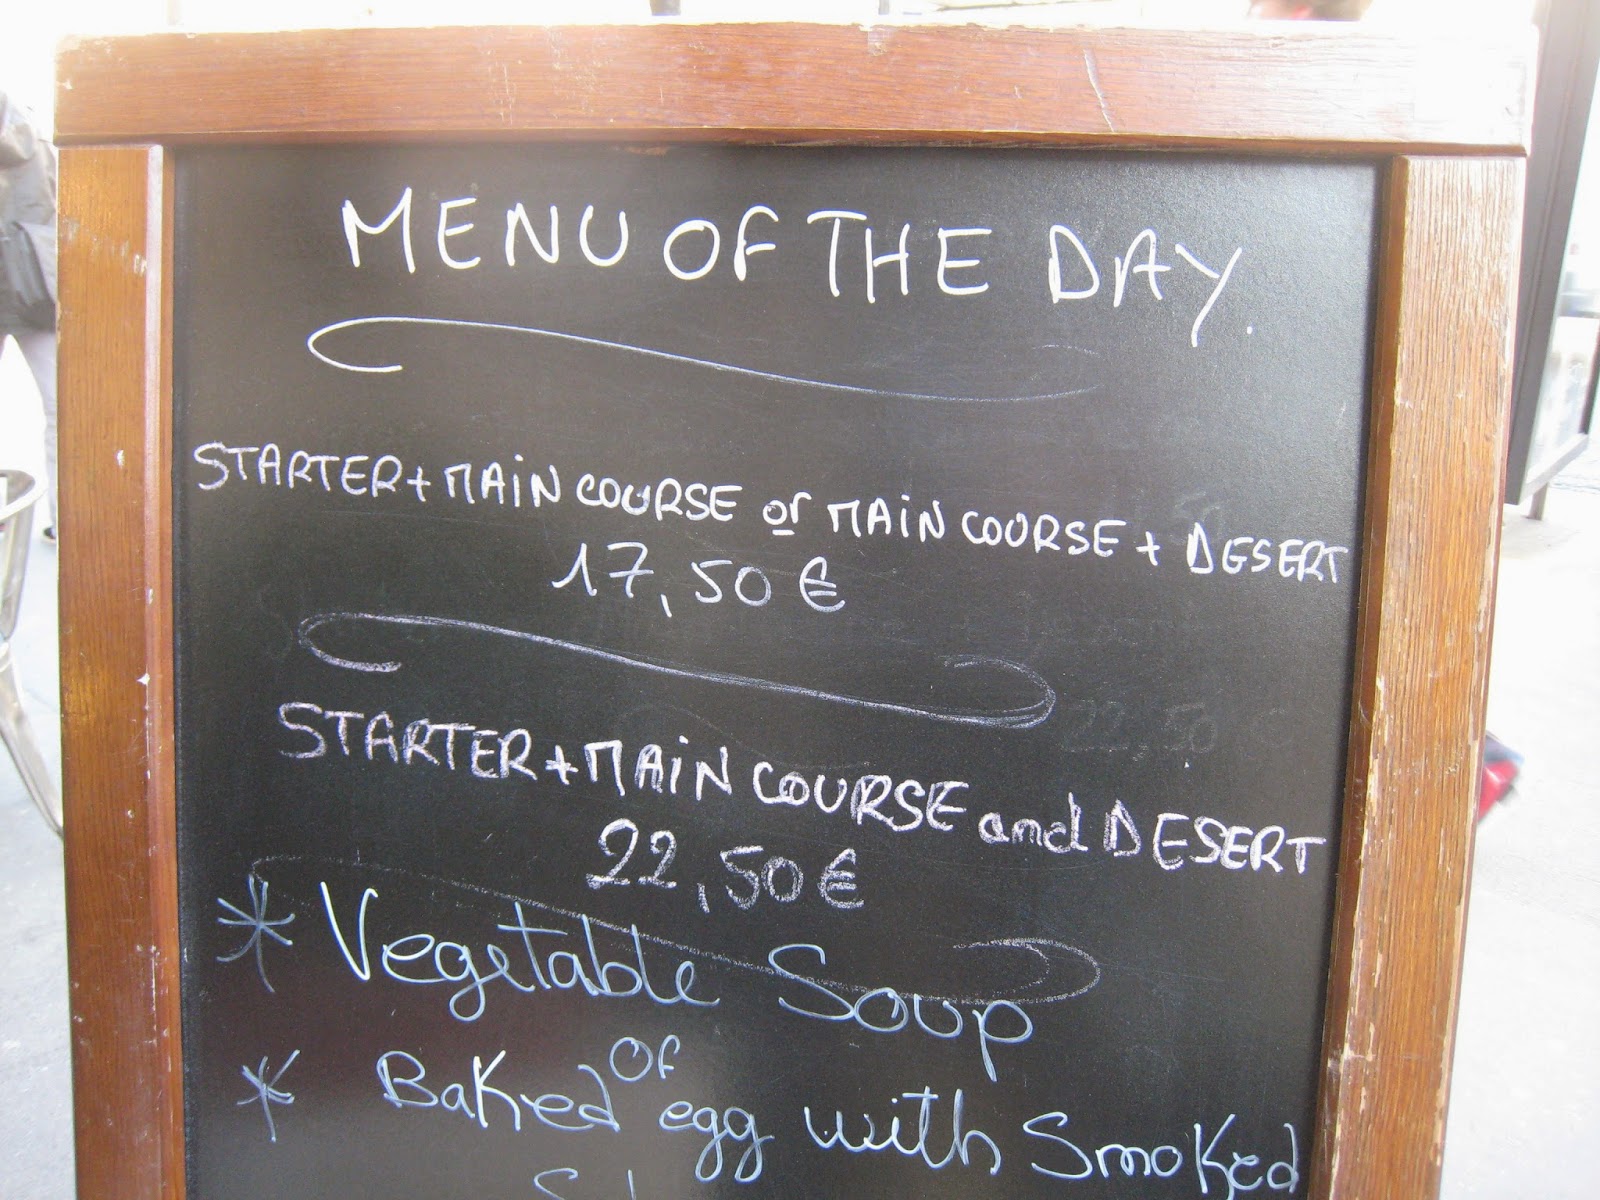 MENU OF THE DAY.
STARTER + MAIN COURSE or MAIN COURSE + DESERT
17,50 €
STARTER + MAIN COURSE and DESERT
22,50 €
* Vegetable Soup
OF
* Baked egg with Smoked